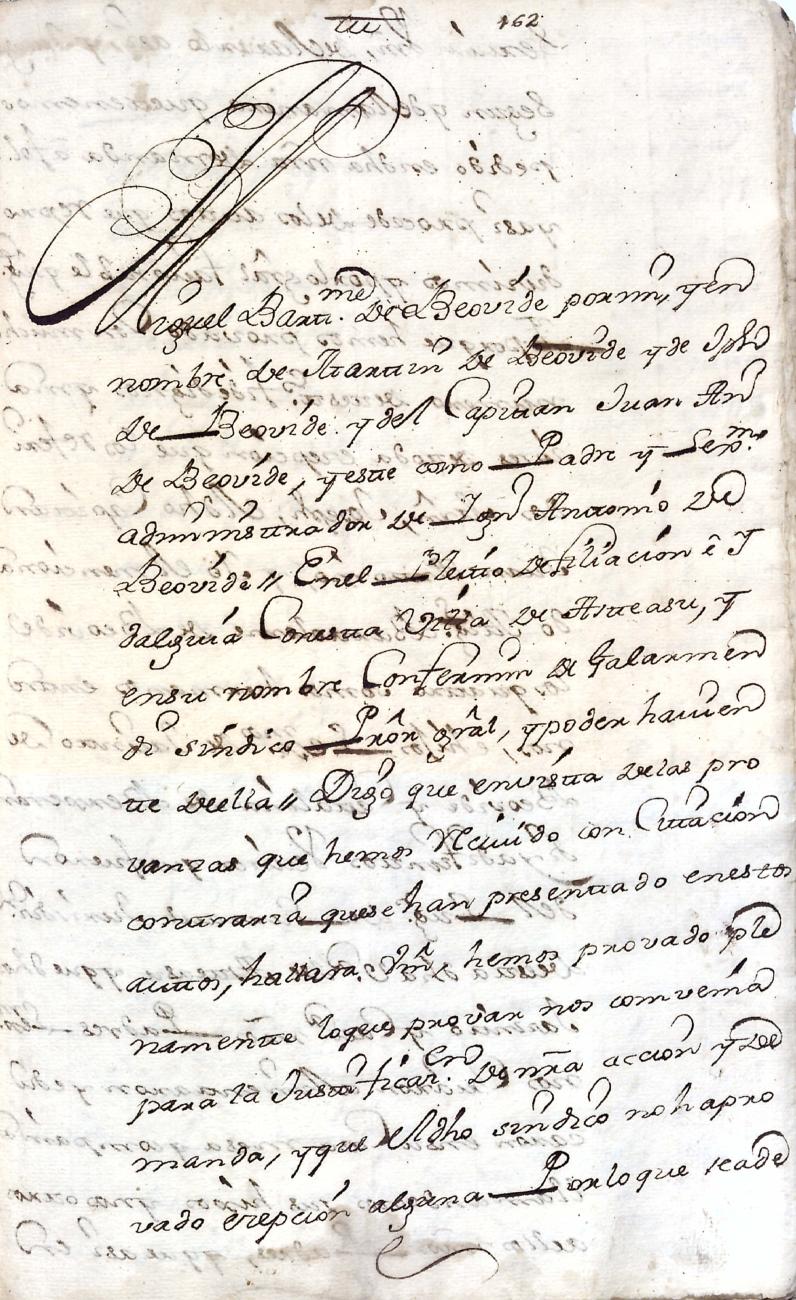 162
Miguel Bart.me de Beovide por mi, y en
nombre de Martin de Beovide y de Jph
de Beovide y del Capitan Juan An
de Beovide, y este como Padre y
administrador de Ign Antonio de
Beovide // En el Pleitto de filiacion e I
dalguia Con esta Villa de Asteasu, y
en su nombre Con fermin de Galarmen
di sindico Pror gral, y poder havien
tte de ella // Digo que en vista de las pro
vanzas que hemos Recivido con Cittacion
contraria que se han presentado en estos
auttos, hallara Vm hemos provado ple
namentte lo que provar nos combenia
para la Justificac.on de nra accion y de
manda, y que el dho sindico no ha pro
vado exepcion alguna Por lo que se a de